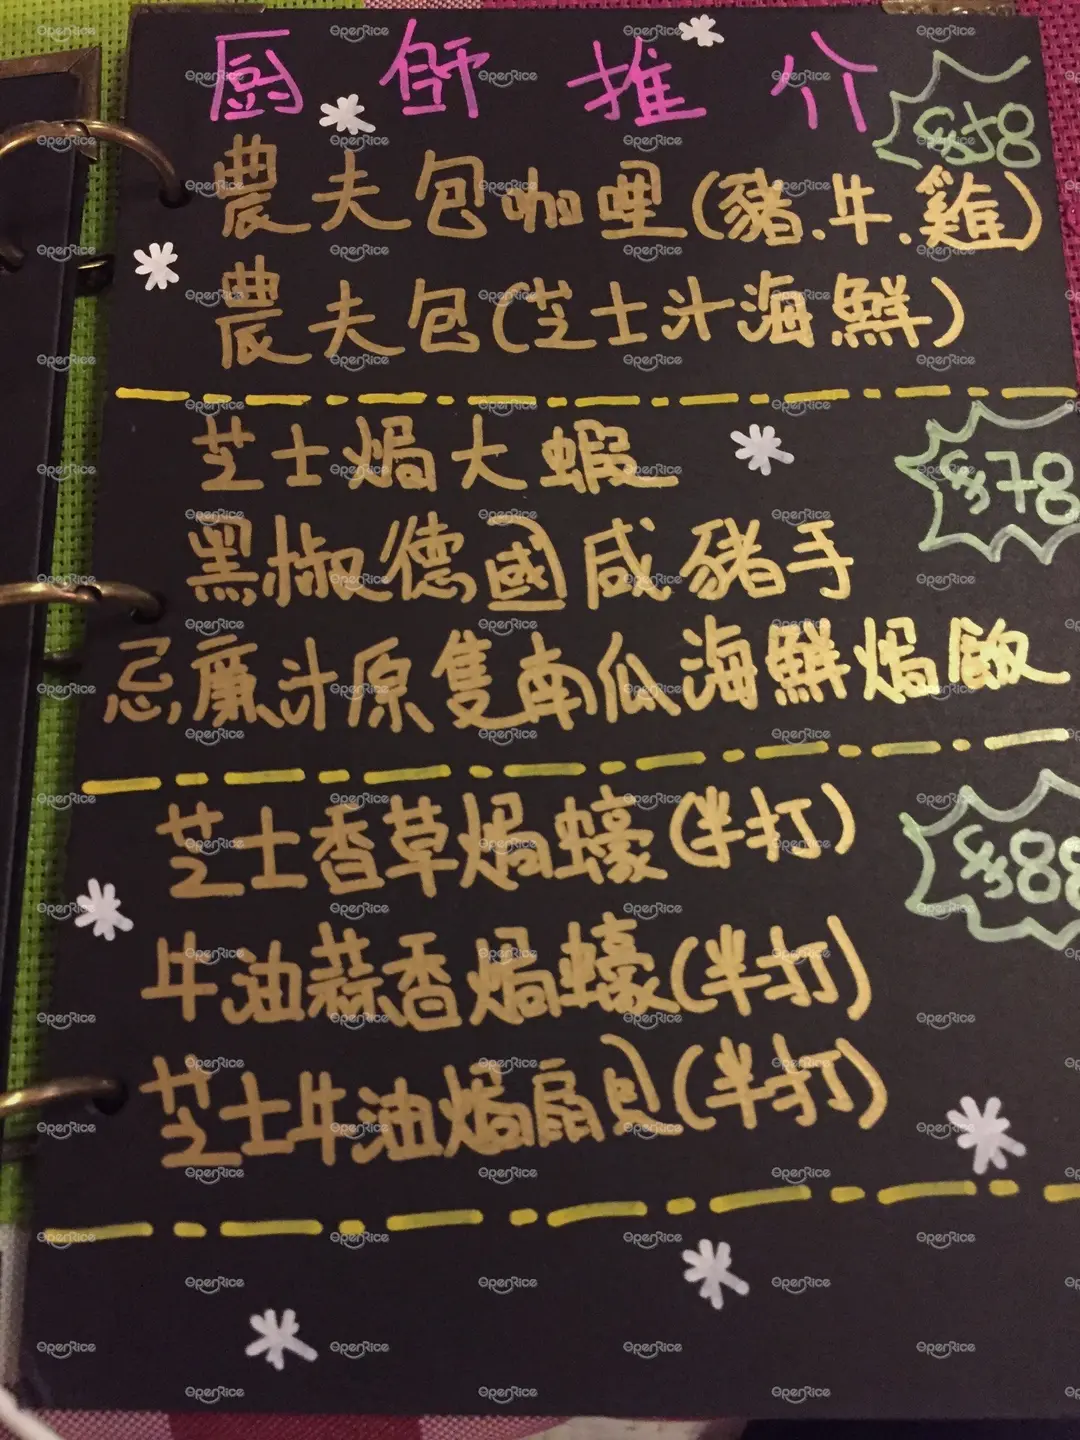 厨師推介
$58
農夫包咖喱(豬.牛.雞)
農夫包(芝士汁海鮮)
芝士焗大蝦
$78
黑椒德國咸豬手
忌廉汁原隻南瓜海鮮焗飯
芝士香草焗蠔(半打)
$88
牛油蒜香焗蠔(半打)
芝士牛油焗扇貝(半打)
OpenRice